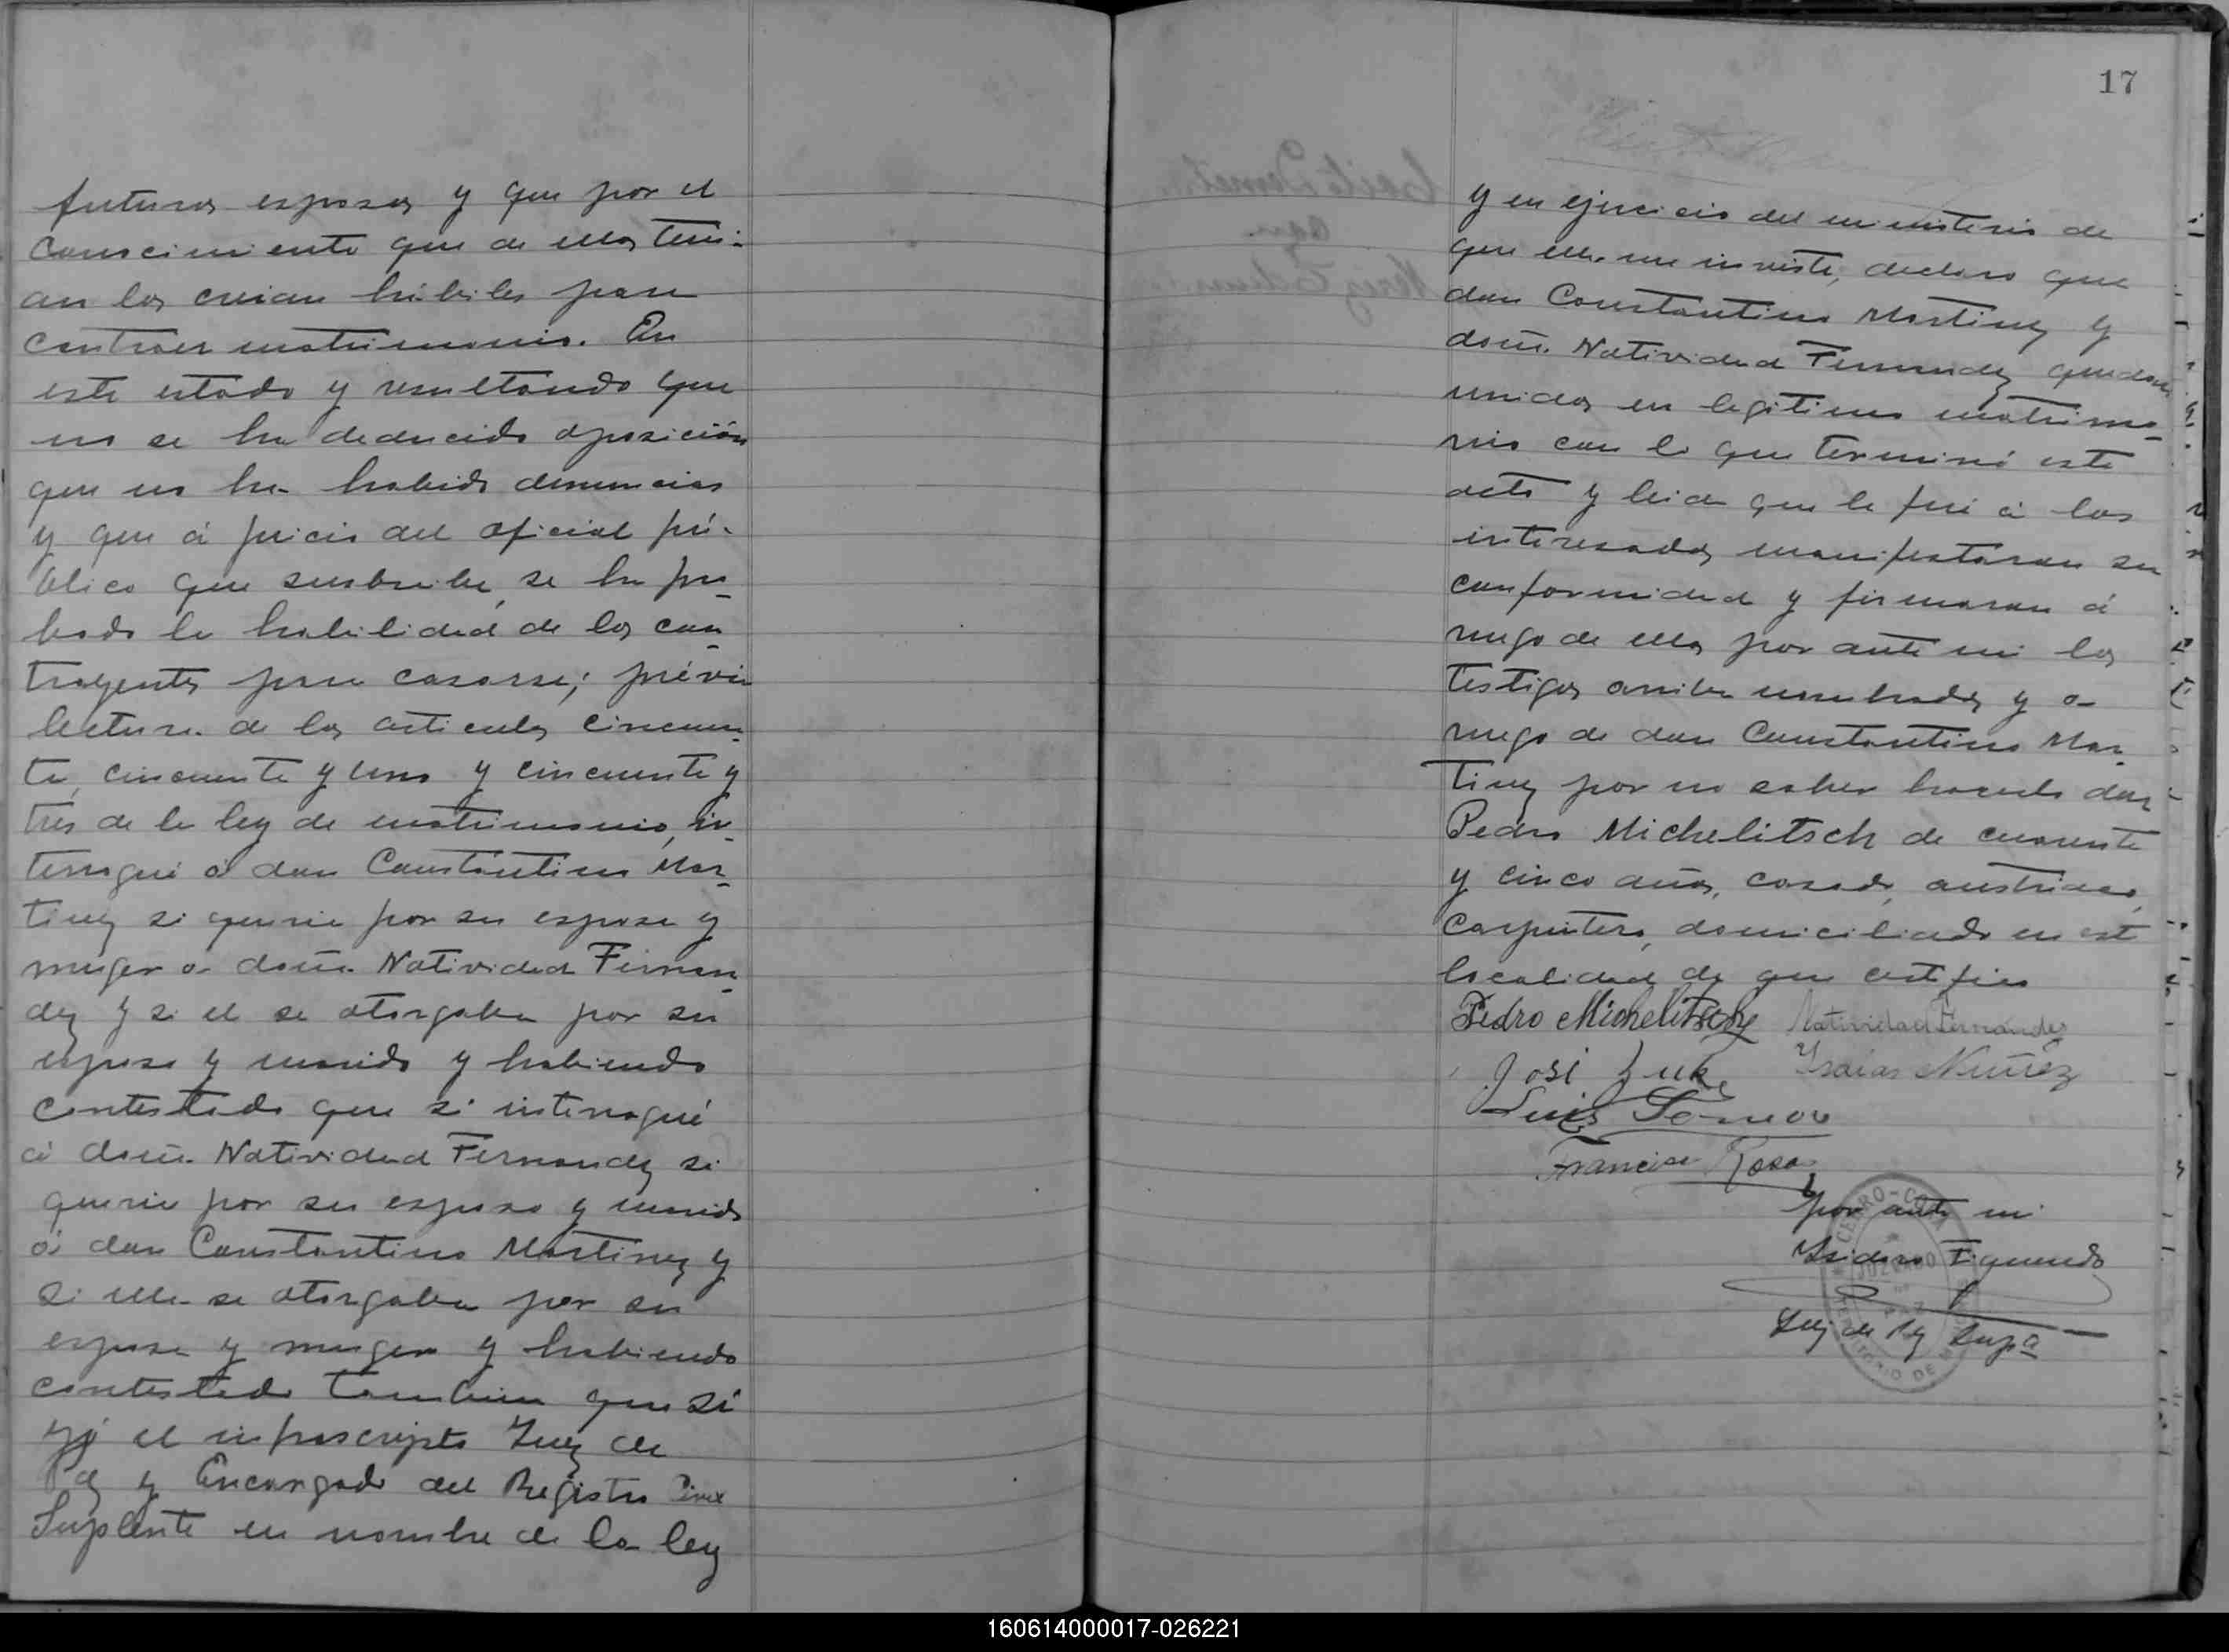 futuros esposos y que por el
conocimiento que de ellos teni-
an los creian hábiles para
contraer matrimonio. En
este estado y resultando que
no se ha deducido oposición
que no ha habido denuncias
y que á juicio del oficial pú-
blico que suscribe, se ha pro-
bado la habilidad de los con-
trayentes para casarse; prévia
lectura de los articulos cincuen-
ta, cincuenta y uno y cincuenta y
tres de la ley de matrimonio, in-
terrogué á don Constantino Mar-
tinez si queria por su esposa y
muger a doña Natividad Fernan-
dez y si el se otorgaba por su
esposo y marido y habiendo
contestado que si interrogué
á doña Natividad Fernandez si
queria por su esposo y marido
á don Constantino Martinez y
si ella se otorgaba por su
esposa y muger y habiendo
contestado tambien que si
yó el infrascripto Juez de
Paz y Encargado del Registro Civil
Suplente en nombre de la ley
17
y en ejercicio del ministerio de
que ella me inviste, declaro que
don Constantino Martinez y
doña Natividad Fernandez quedan
unidos en legitimo matrimo-
nio con lo que terminó este
acto y leida que le fué á los
interesados manifestaron su
conformidad y firmaron á
ruego de ellos por ante mi los
testigos arriba nombrados y a
ruego de don Constantino Mar-
tinez por no saber hacerlo don
Pedro Michelitsch de cuarenta
y cinco años, casado, austriaco,
carpintero, domiciliado en esta
localidad de que certifico
Pedro Michelitsch Natividad Fernández
José Isaías Nuñez
Luis
Francisco Rosa
por ante mi
Isidoro Figueredo
Juez de Paz Supe
CERRO-CORÁ
JUZGADO
DE
PAZ
TERRITORIO DE
160614000017-026221